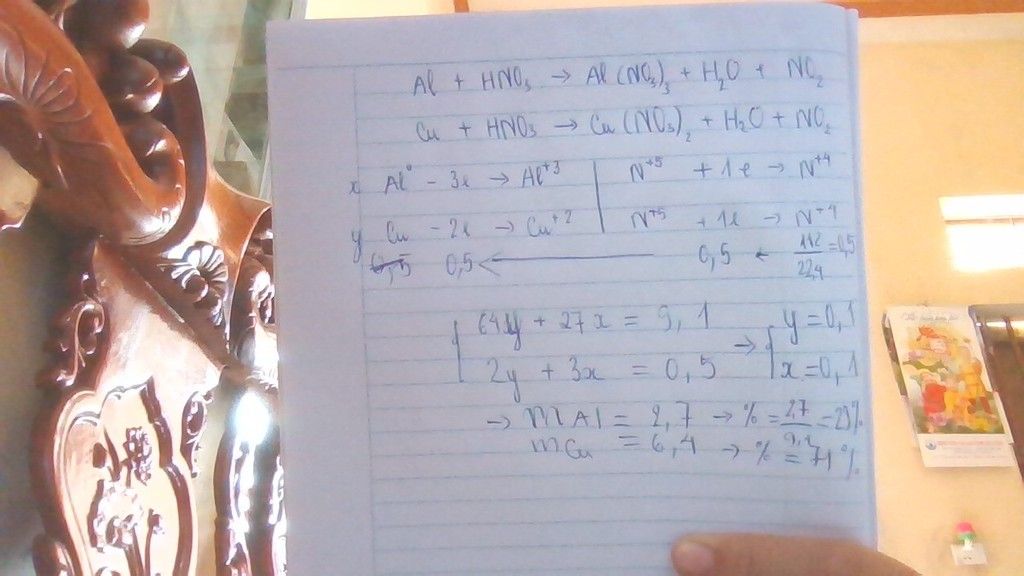 Al + HNO₃ → Al(NO₃)₃ + H₂O + NO₂
Cu + HNO₃ → Cu(NO₃)₂ + H₂O + NO₂
x Al⁰ - 3e → Al⁺³ | N⁺⁵ + 1e → N⁺⁴
y Cu - 2e → Cu⁺² | N⁺⁵ + 1e → N⁺⁴
0,5 0,5 ← 0,5 ← 11,2/22,4 = 0,5
{ 64y + 27x = 9,1 → { y = 0,1
{ 2y + 3x = 0,5 { x = 0,1
→ mAl = 2,7 → % = 2,7/9,1 = 29%
mCu = 6,4 → % = 71%